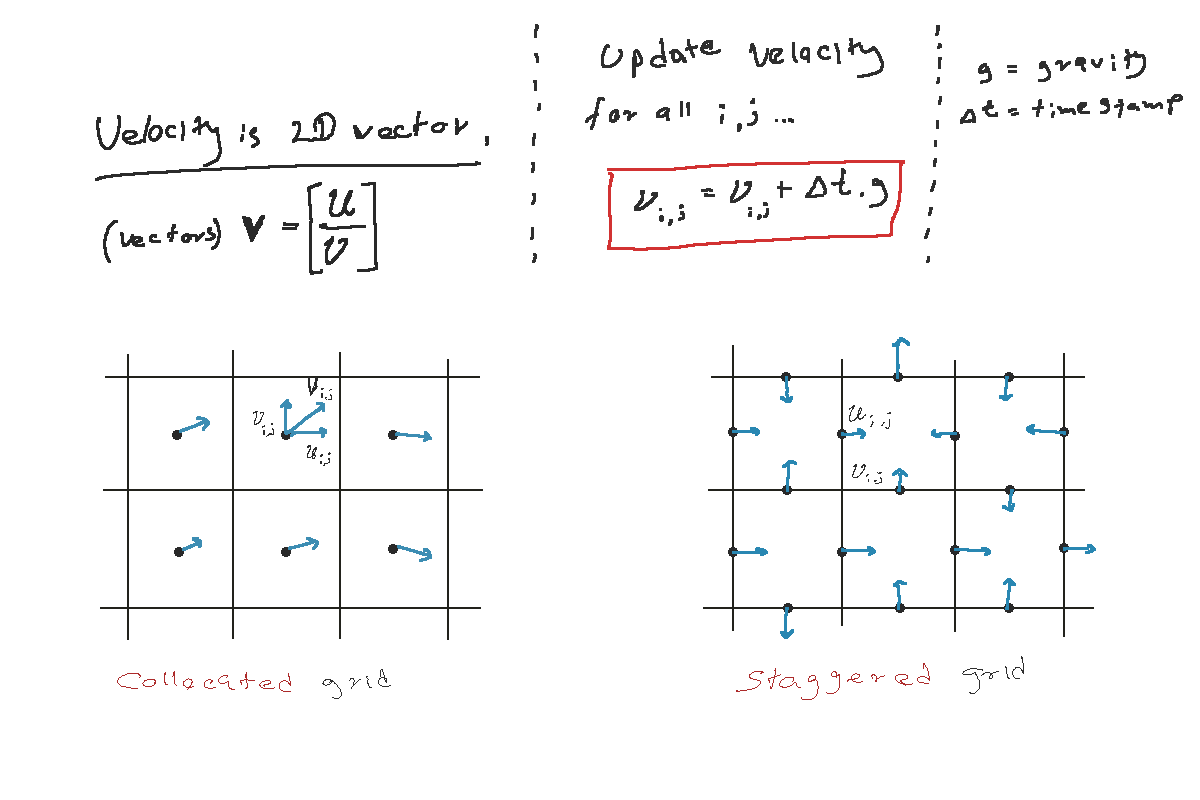 Velocity is 2D vector,
(vectors) V = [u / v]
Update velocity
for all i,j ...
v i,j = v i,j + Δt . g
g = gravity
Δt = time stamp
V i,j
v i,j
u i,j
u i,j
v i,j
Collocated grid
Staggered grid